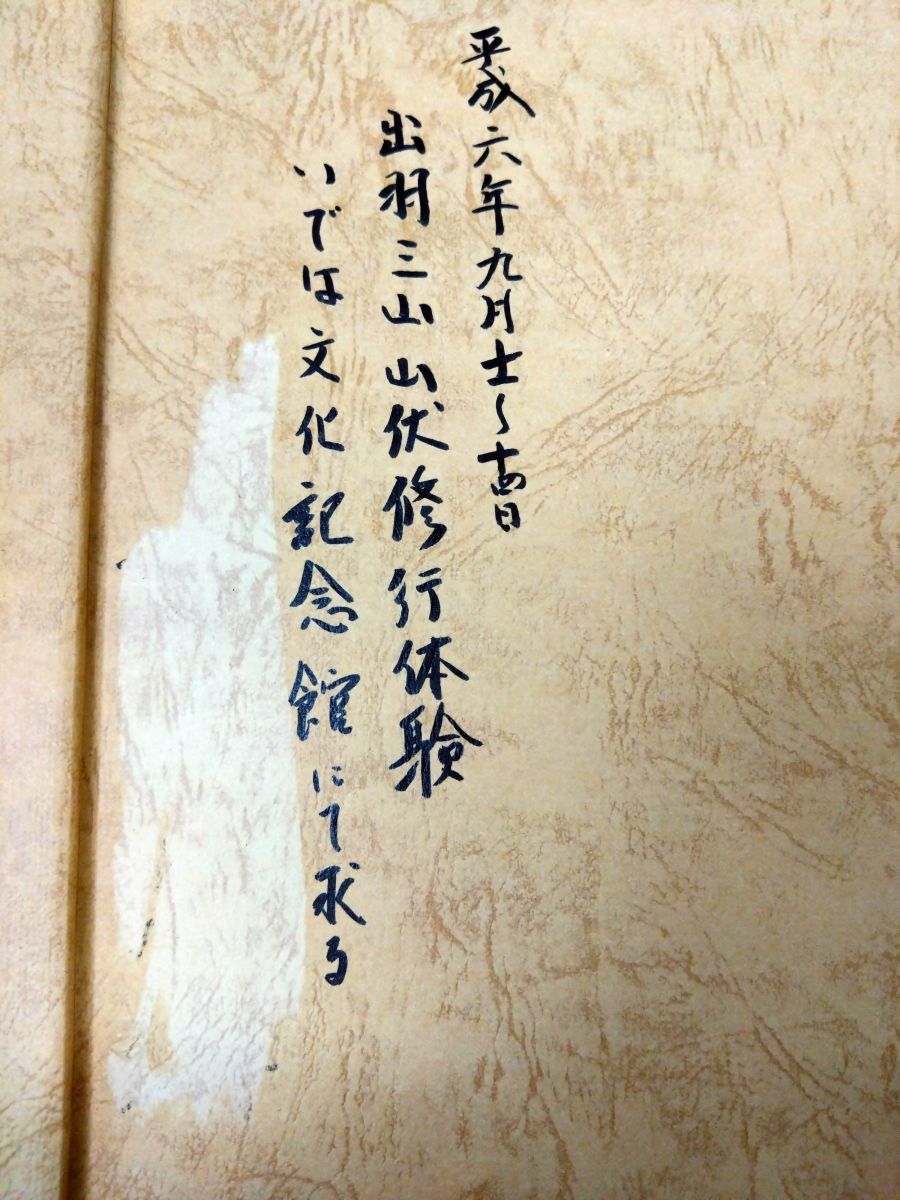 平成六年九月十一〜十四日
出羽三山山伏修行体験
いでは文化記念館にて求る